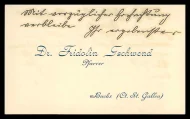 Mit vorzüglicher Hochachtung
verbleibe Ihr ergebenster
Dr. Fridolin Gschwend
Pfarrer
(Ct. St. Gallen)